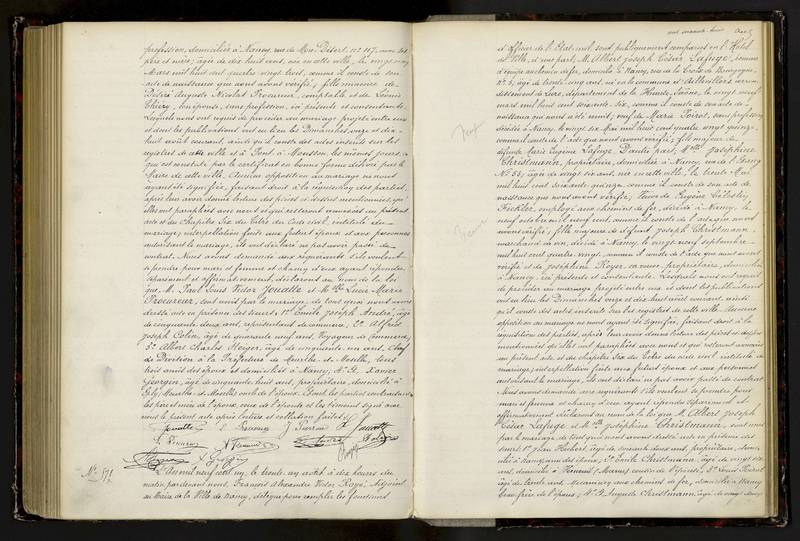 profession, domiciliée à Nancy, rue de Mon Désert, n° 117, avec ses
père et mère; âgée de dix huit ans, née en cette ville, le vingt neuf
Mars mil huit cent quatre vingt trois, comme il conste de son
acte de naissance que nous avons vérifié; fille mineure de
Désiré Auguste Nicolas Procureur, comptable et de Léonie
Thiéry, son épouse, sans profession, ici présents et consentants.
Lesquels nous ont requis de procéder au mariage projeté entre eux
et dont les publications ont eu lieu les Dimanches onze et dix-
huit août courant, ainsi qu'il conste des actes inscrits sur les
registres de cette ville et à Pont-à-Mousson les mêmes jours, ce
qui est constaté par le certificat en bonne forme délivré par le
Maire de cette ville. Aucune opposition au mariage ne nous
ayant été signifiée, faisant droit à la réquisition des parties,
après leur avoir donné lecture des pièces ci-dessus mentionnées, qu'
elles ont paraphées avec nous et qui resteront annexées au présent
acte et du chapitre six du titre du Code civil, intitulé du
mariage; interpellation faite aux futurs époux et aux personnes
autorisant le mariage, ils ont déclaré ne pas avoir passé de
contrat. Nous avons demandé aux requérants s'ils veulent
se prendre pour mari et femme et chacun d'eux ayant répondu
séparément et affirmativement, déclarons au nom de la loi
que, M. Paul Louis Victor Jouatte et Mlle Lucie Marie
Procureur, sont unis par le mariage, de tout quoi nous avons
dressé acte en présence des sieurs: 1° Emile Joseph André, âgé
de cinquante deux ans, représentant de commerce; 2° Alfred
Joseph Colin, âgé de quarante neuf ans, Voyageur de Commerce;
3° Albert Charles Steiger, âgé de cinquante un ans, Chef
de Division à la Préfecture de Meurthe et Moselle, tous
trois amis des époux et domiciliés à Nancy; 4° Xavier
Georgin, âgé de cinquante huit ans, propriétaire, domicilié à
(Meurthe et Moselle) oncle de l'épouse. Et ont les parties contractantes
les père et mère de l'époux, ceux de l'épouse et les témoins signé avec
nous le présent acte après lecture et collation faites.
Jouatte L. Procureur J. Pierron
X. Georgin
N° 571 L'An mil neuf cent un, le trente un août à dix heures du
matin, pardevant nous, François Alexandre Victor Royé, Adjoint
au Maire de la Ville de Nancy, délégué pour remplir les fonctions
d'officier de l'Etat civil, sont publiquement comparus en l'Hôtel
de Ville, d'une part, M. Albert Joseph César Lafuge, homme
d'équipe au chemin de fer, domicilié à Nancy, rue de la Croix de Bourgogne,
N° 5, âgé de trente cinq ans, né en la commune d'Aillevillers, arron-
dissement de Lure, département de la Haute Saône, le vingt neuf
mars mil huit cent soixante six, comme il conste de son acte de
naissance qui nous a été remis; veuf de Marie Poirot, sans profession,
décédée à Nancy, le vingt six Mai mil huit cent quatre vingt quinze,
comme il conste de l'acte que nous avons vérifié; fils majeur de
défunte Marie Lafuge. D'autre part Mme Joséphine
Christmann, propriétaire, domiciliée à Nancy, rue de l'Etang
N° 55, âgée de vingt six ans, née en cette ville, le trente Mai
mil huit cent soixante quinze, comme il conste de son acte de
naissance que nous avons vérifié, Veuve de Eugène Célestin
Fichter, employé aux chemins de fer, décédé à Nancy, le
neuf octobre mil neuf cent, comme il conste de l'acte que nous
avons vérifié; fille majeure de défunt Joseph Christmann,
marchand de vin, décédé à Nancy, le vingt neuf septembre
mil huit cent quatre vingt, comme il conste de l'acte que nous avons
vérifié et de Joséphine Royer, sa veuve, propriétaire, domiciliée
à Nancy, ici présente et consentante. Lesquels nous ont requis
de procéder au mariage projeté entre eux et dont les publications
ont eu lieu les Dimanches onze et dix huit août courant, ainsi
qu'il conste des actes inscrits sur les registres de cette ville. Aucune
opposition au mariage ne nous ayant été signifiée, faisant droit à la
réquisition des parties, après leur avoir donné lecture des pièces ci-dessus
mentionnées qu'elles ont paraphées avec nous et qui resteront annexées
au présent acte et du chapitre six du titre du code civil intitulé du
mariage, interpellation faite aux futurs époux et aux personnes
autorisant le mariage, ils ont déclaré ne pas avoir passé de contrat.
Nous avons demandé aux requérants s'ils veulent se prendre pour
mari et femme et chacun d'eux ayant répondu séparément et
affirmativement déclarons au nom de la loi que M. Albert Joseph
César Lafuge et Mme Joséphine Christmann, sont unis
par le mariage de tout quoi nous avons dressé acte en présence des
sieurs: 1° Jean Herbert, âgé de soixante deux ans, propriétaire, domi-
cilié à Nancy, ami des époux; 2° Emile Christmann, âgé de vingt six
ans, domicilié à (Marne) cousin de l'épouse; 3° Louis Poirot
âgé de trente ans, Mécanicien aux chemins de fer, domicilié à Nancy
beau-frère de l'époux; 4° Auguste Christmann, âgé de vingt
Veuf
Veuve